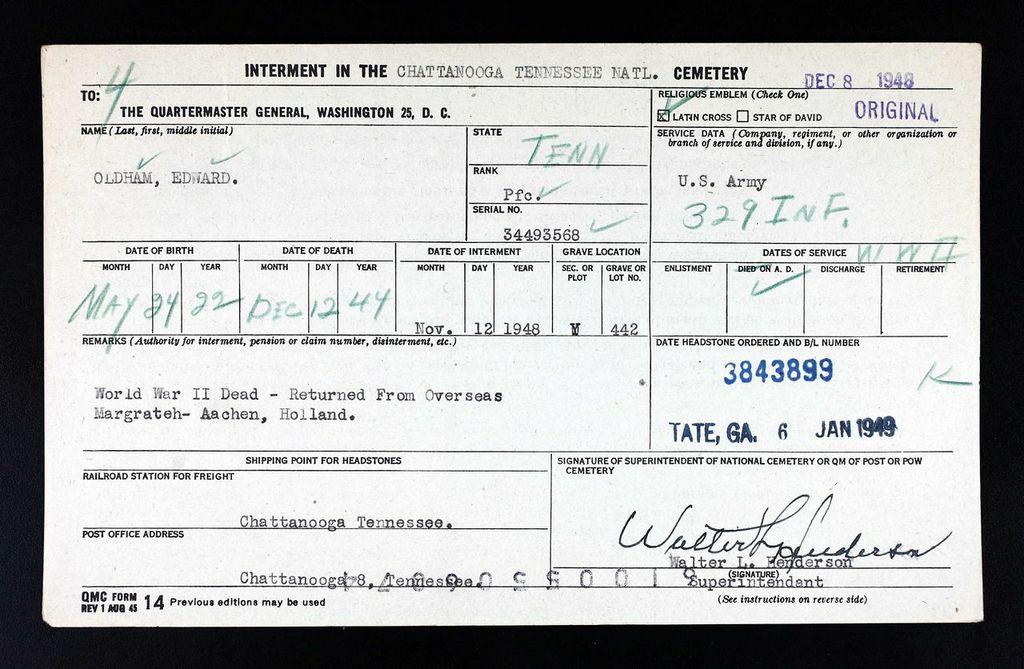 4
INTERMENT IN THE CHATTANOOGA TENNESSEE NATL. CEMETERY
DEC 8 1948
ORIGINAL
TO:
THE QUARTERMASTER GENERAL, WASHINGTON 25, D. C.
RELIGIOUS EMBLEM (Check One)
☒ LATIN CROSS ☐ STAR OF DAVID
NAME (Last, first, middle initial)
OLDHAM, EDWARD.
STATE
TENN
RANK
Pfc.
SERIAL NO.
34493568
SERVICE DATA (Company, regiment, or other organization or
branch of service and division, if any.)
U.S. Army
329 INF.
DATE OF BIRTH
MONTH DAY YEAR
MAY 24 22
DATE OF DEATH
MONTH DAY YEAR
DEC 12 44
DATE OF INTERMENT
MONTH DAY YEAR
Nov. 12 1948
GRAVE LOCATION
SEC. OR PLOT
GRAVE OR LOT NO.
442
DATES OF SERVICE WW II
ENLISTMENT DIED ON A. D. DISCHARGE RETIREMENT
REMARKS (Authority for interment, pension or claim number, disinterment, etc.)
World War II Dead - Returned From Overseas
Margrateh- Aachen, Holland.
DATE HEADSTONE ORDERED AND B/L NUMBER
3843899
K
TATE, GA. 6 JAN 1949
SHIPPING POINT FOR HEADSTONES
RAILROAD STATION FOR FREIGHT
Chattanooga Tennessee.
POST OFFICE ADDRESS
Chattanooga 8, Tennessee.
SIGNATURE OF SUPERINTENDENT OF NATIONAL CEMETERY OR QM OF POST OR POW
CEMETERY
Walter L. Henderson
Walter L. Henderson
(SIGNATURE)
Superintendant
QMC FORM
REV 1 AUG 45 14 Previous editions may be used
(See instructions on reverse side)